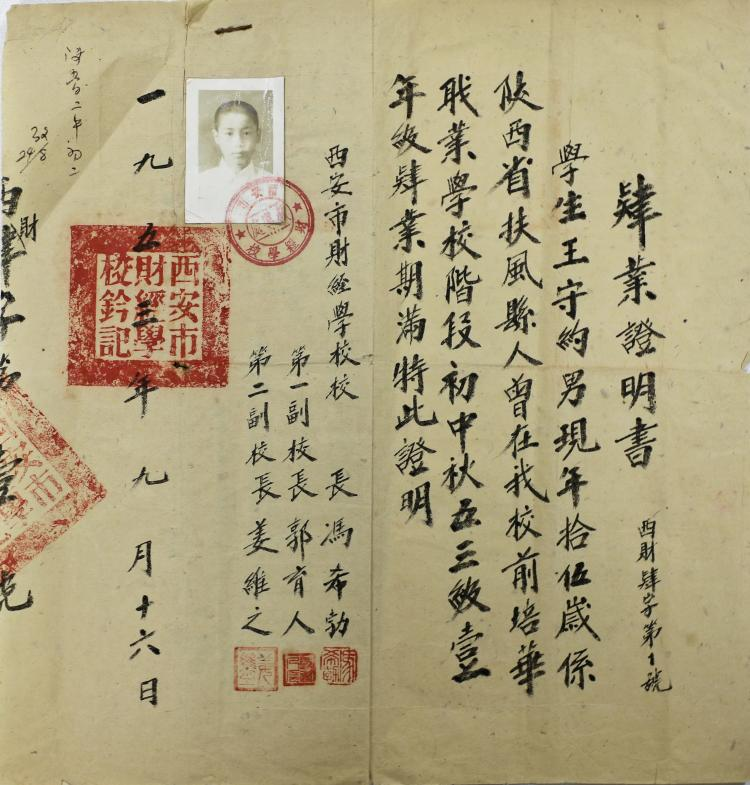 肄業證明書
西財肄字第1號
學生王守約男現年拾伍歲係
陝西省扶風縣人曾在我校前培華
職業學校階段初中秋五三級壹
年級肄業期滿特此證明
西安市財經學校校長馮希勃
第一副校長郭育人
第二副校長姜維之
西安市財經學校鈐記
一九五三年九月十六日
西財肄字第壹號